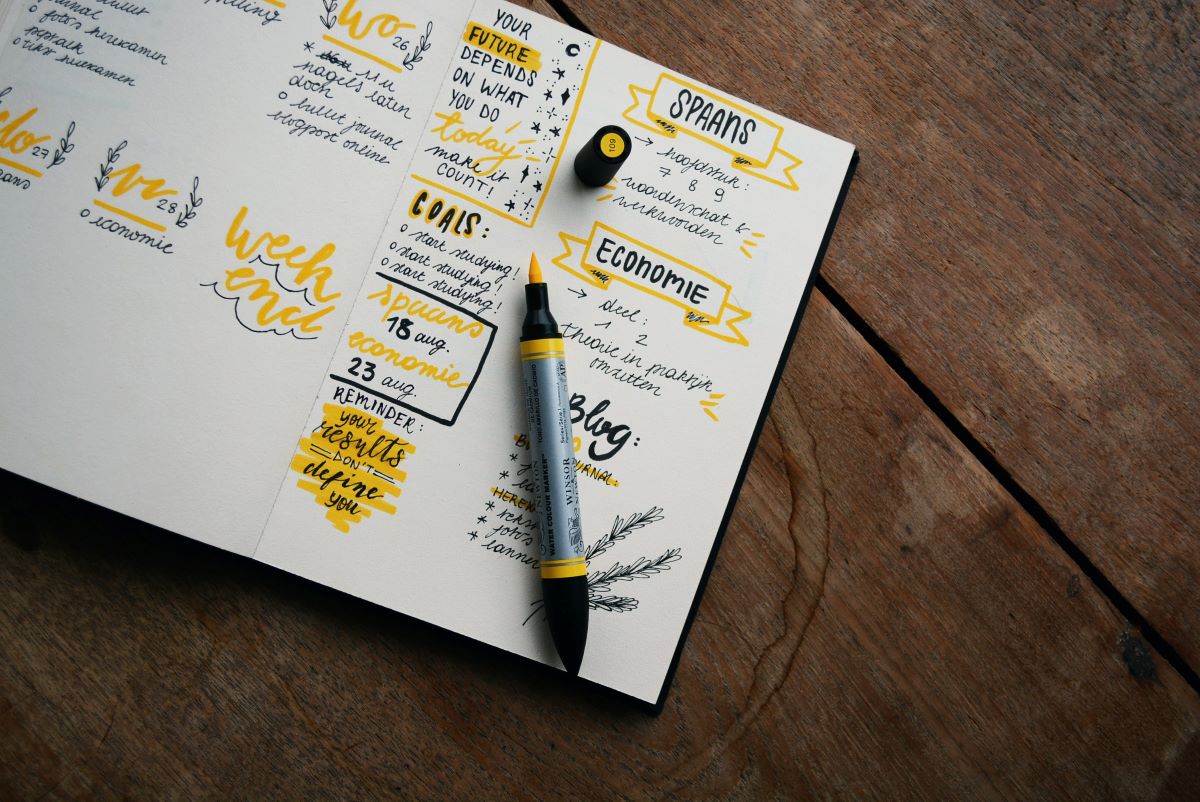 foto's herekamen
wo 26
11u
nagels laten
doen
o bullet journal
blogpost online
do 27
vr 28
o economie
week
end
YOUR
FUTURE
DEPENDS
ON WHAT
YOU DO
today
make it
COUNT!
GOALS:
o start studying!
o start studying!
o start studying!
spaans
18 aug.
economie
23 aug.
REMINDER:
your
results
DON'T
define
you
SPAANS
→ hoofdstuk:
7 8 9
woordenschat &
werkwoorden
ECONOMIE
→ deel:
1 2
theorie in praktijk
omzetten
Blog:
JOURNAL:
HEREN
* tekst
* foto's
109
WINSOR
& NEWTON
WATER COLOUR MARKER